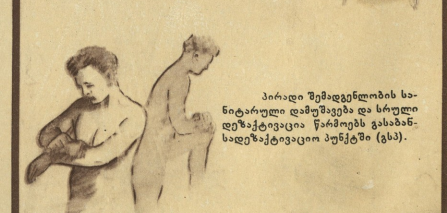 პირადი შემადგენლობის სა-
ნიტარული დამუშავება და სრული
დეზაქტივაცია წარმოებს გასაბან-
სადეზაქტივაციო პუნქტში (გსპ).